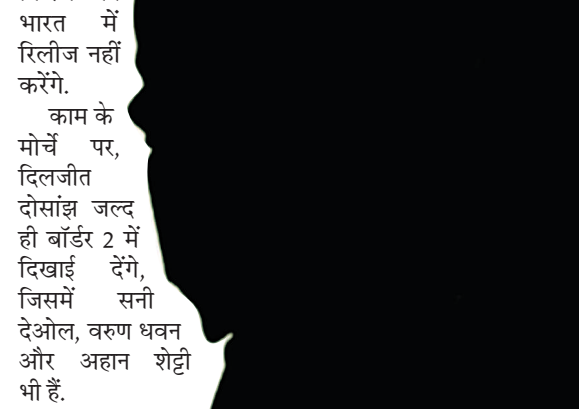 भारत में
रिलीज नहीं
करेंगे.
काम के
मोर्चे पर,
दिलजीत
दोसांझ जल्द
ही बॉर्डर 2 में
दिखाई देंगे,
जिसमें सनी
देओल, वरुण धवन
और अहान शेट्टी
भी हैं.